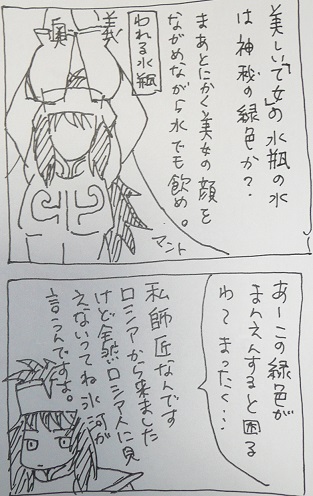 美しいで「女」の水瓶の水
は神秘の緑色か？
まあとにかく美女の顔を
ながめながら水でも飲め。
われる水瓶
奥義
マント
あーこの緑色が
まんえんすると困る
わてまったく…
私師匠なんです
ロシアから来ました
けど全然ロシア人に見
えないってね氷河が
言うんですよ。